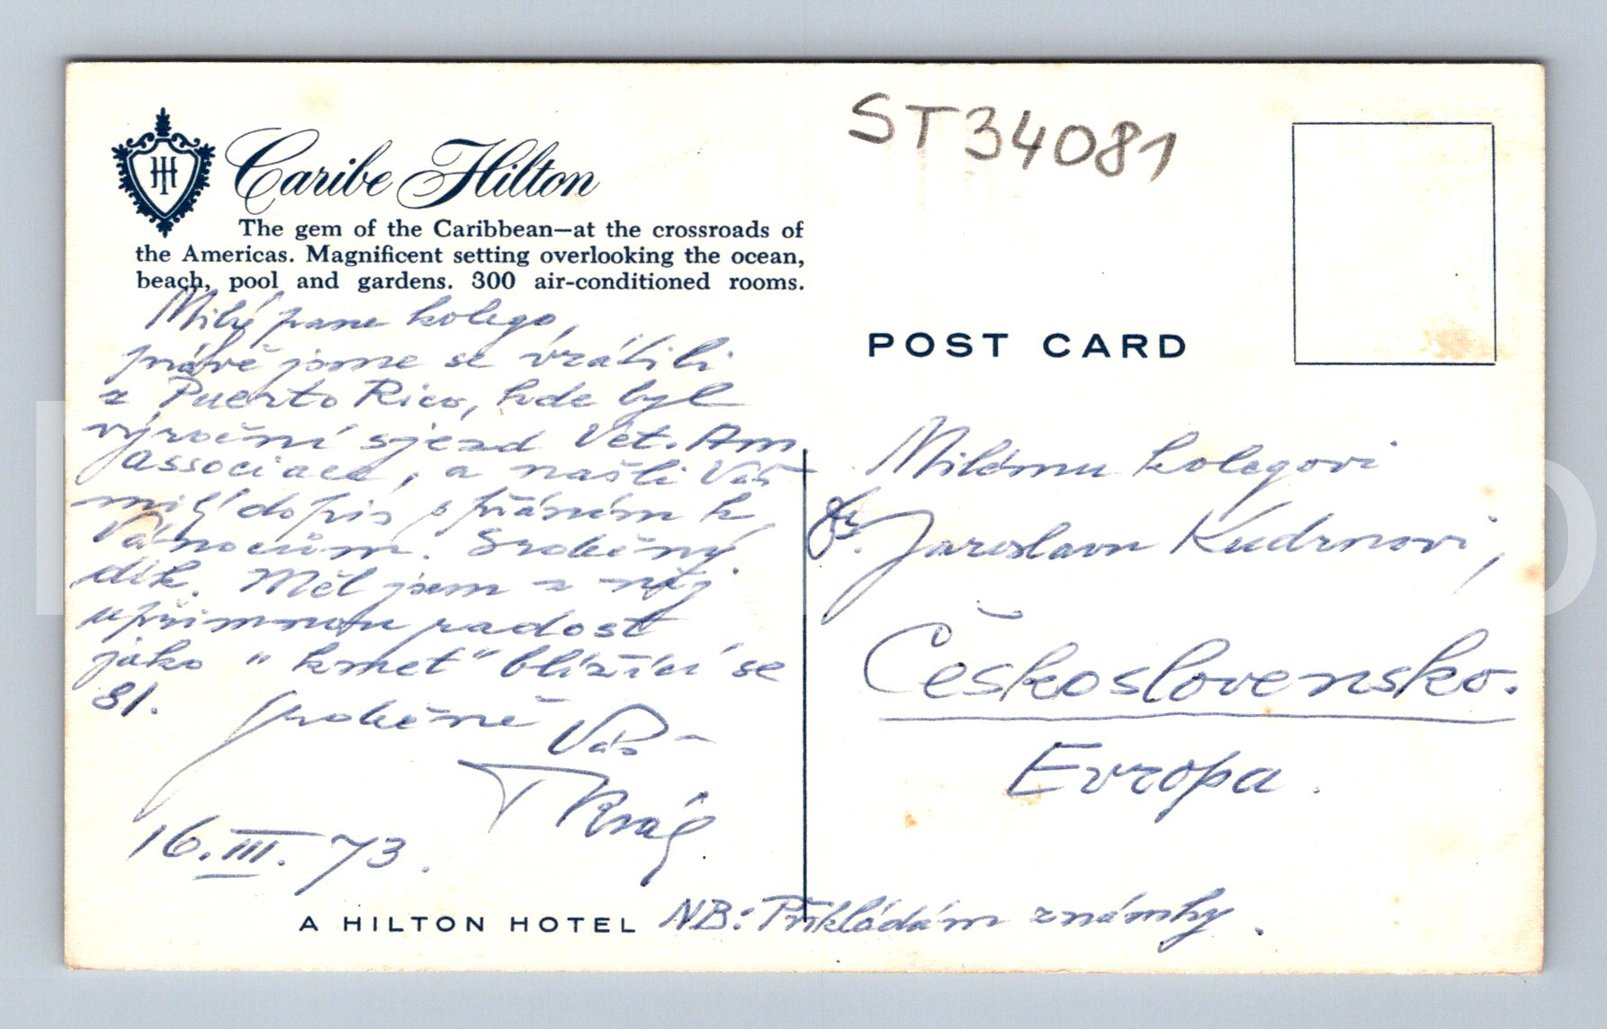 Caribe Hilton
The gem of the Caribbean—at the crossroads of
the Americas. Magnificent setting overlooking the ocean,
beach, pool and gardens. 300 air-conditioned rooms.
Milý pane kolego,
právě jsme se vrátili
z Puerto Rico, kde byl
výroční sjezd Vet. Am
associace, a našli Váš
milý dopis s přáním k
Vánocům. Srdečný
dík. Měl jsem z něj
upřímnou radost
jako "kmet" blížící se
81.
Srdečně Váš
Král
16. III. 73.
A HILTON HOTEL
ST34081
POST CARD
Milému kolegovi
Jaroslavu Kudrnovi,
Československo.
Evropa.
NB: Přikládám známky.